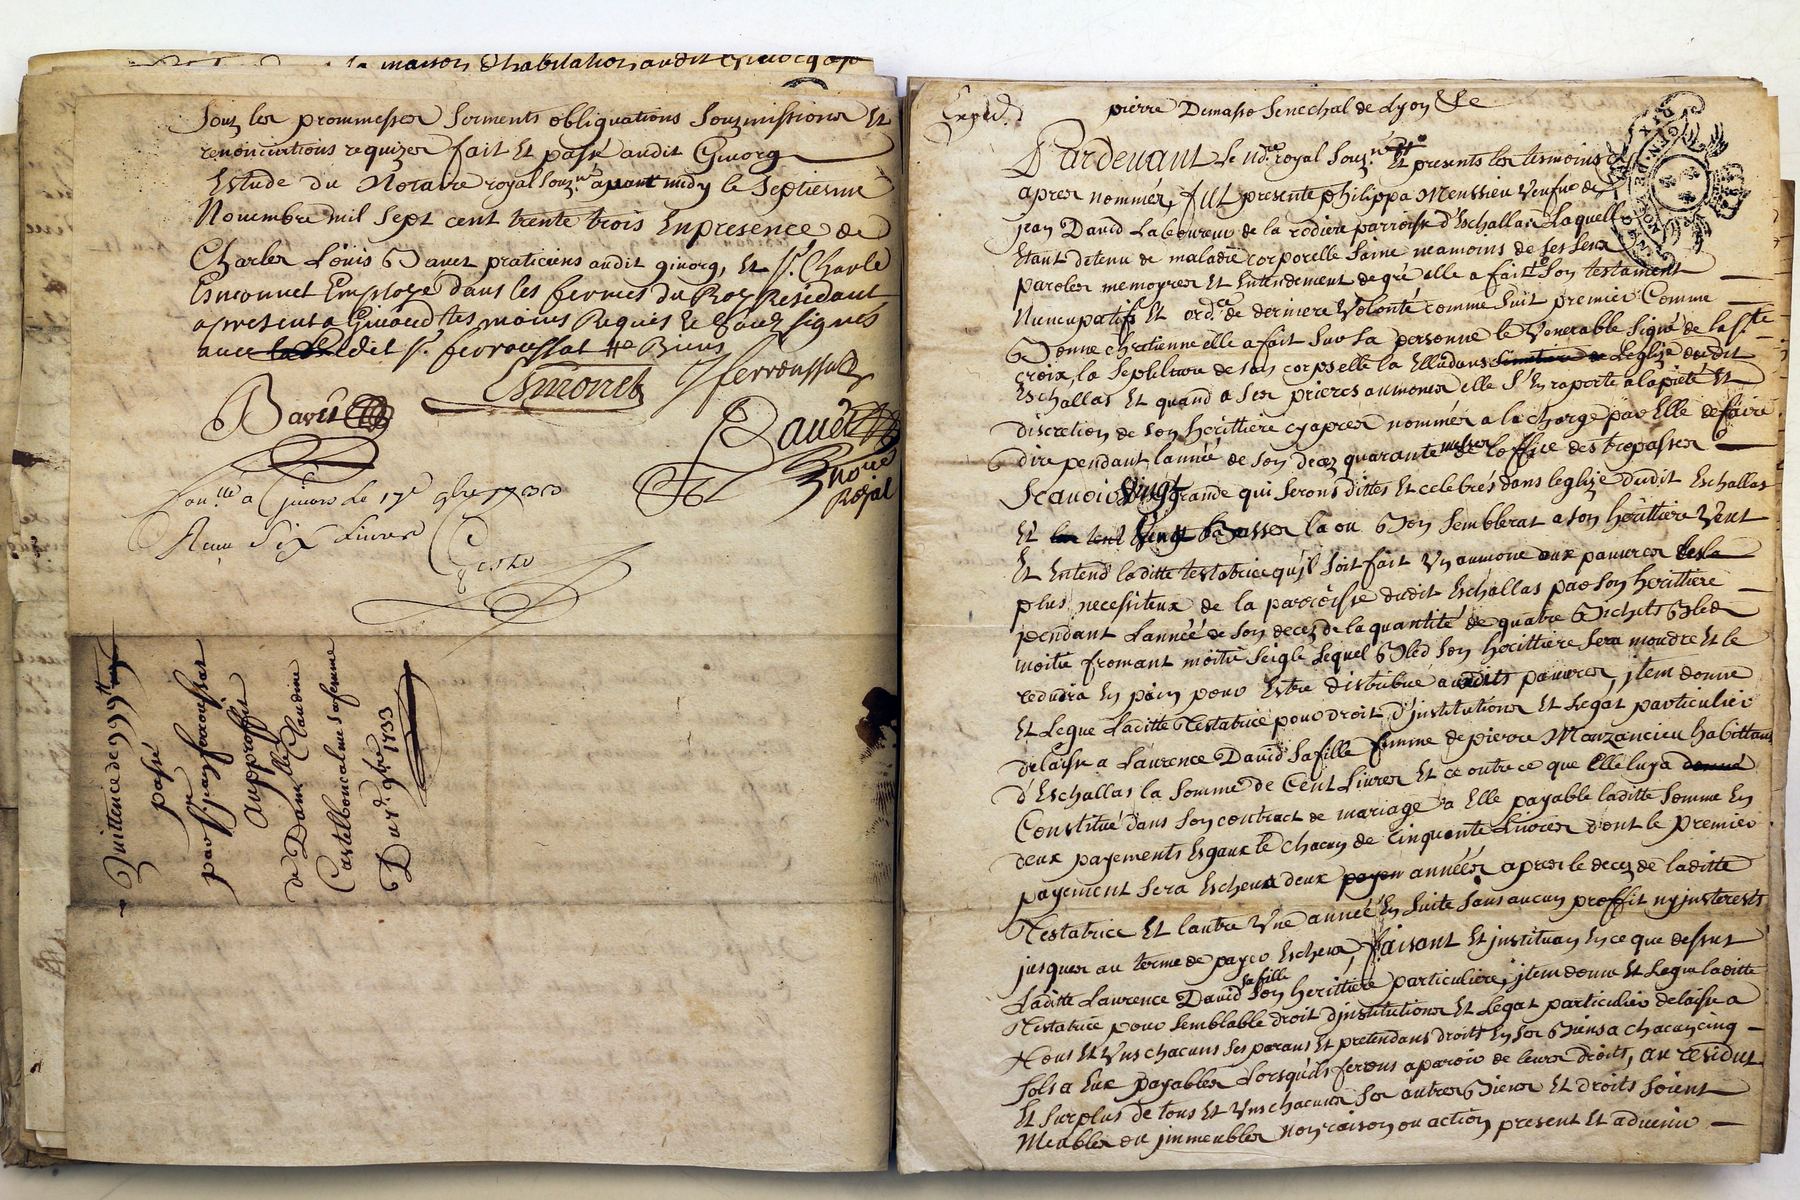 la maison d'habitation audit
souz les prommesses serments obliguations souzmissions Et
renonciations requizes fait Et passé audit Givorg
Estude du Notaire royal souz.né avant midy le septiesme
Novembre mil sept cent trente trois En presence de
Charles Louis Bavet praticiens audit givorg, Et Sr. Charle
Esmonnet Employé dans les fermes du Roy Residant
apresent a Givord tesmoins Requis Et Souz signes
avec ledit Sr. ferroussat
Bavet
Esmonet
ferroussat
Bavet
Nore
Royal
a Givors le 17e 9bre 1733
Six Livres
Quittence de
passé
par Sr jean ferroussat
Au proffit
de Dam.lle Claudine
Castelbouc sa femme
Du 7e 9bre 1733
pierre Demasso Senechal de Lyon &c
Expéd.
GEN. DE LYON
DIX
Pardevant Le no.re royal souz.né Et presents les tesmoins
apres nommés, fut presente philippa Moussieu veufve de
jean David Laboureur de la rodiere parroisse d'Eschallas Laquelle
Etant detenu de maladie corporelle saine neamoins de ses sens
paroles memoyres Et Entendement de gré elle a fait son testament
Nuncupatifs Et ord.re de derniere volonté comme suit premier Comme
Bonne chretienne elle a fait sur sa personne le venerable signe de la s.te
croix, la sepulture de son corps elle la Elli dans L'eglise dudit
Eschallas Et quand a ses prieres aumones elle s'En raporte a la pieté Et
discretion de son herittiere cy apres nommés a la charge par Elle de faire
dire pendant l'anneé de son decez quarante messes de l'office des trepasses
Scavoir vingt grande qui serons dittes Et celebrés dans leglize dudit Eschallas
Et vingt basses la ou Bon semblerat a son herittiere veut
Et Entend laditte testatrice qu'il soit fait Un aumone aux pauvres
plus necessiteux de la parroisse dudit Eschallas par son herittiere
pendant L'anneé de son decez de la quantité de quatre Bichets Bled
moitié fromant moitié seigle Lequel Bled son herittiere sera moudre Et le
redudra En pain pour Estre distribué audits pauvres, jtem donne
Et Legue Laditte Testatrice pour droit d'institution Et Legat particulier
delaisse a Laurence David sa fille femme de pierre Manzancieu habittans
d'Eschallas la somme de Cent Livres Et ce outre ce que Elle luy a donné
Constitué dans son contract de mariage a Elle payable laditte somme En
deux payements Esgaux de chacun de cinquante Livres dont le premier
payement sera Escheus deux payem années apres le decez de laditte
Testatrice Et l'autre Une anneé En suite sans aucun proffit ny jnterests
jusques au terme de payer Escheus, faisant Et jnstituan En ce que dessus
Laditte Laurence David sa fille son herittiere particuliere, jtem donne Et Legue laditte
Testatrice pour semblable droit d'jnstitution Et Legat particulier delaisse a
Tous Et Uns chacuns ses parans Et pretendans droits En ses Biens a chacun cinq
sols a Eux payables Lorsqu'ils ferons aparoir de leurs droits, au residut
Et surplus de tous Et Uns chacuns ses autres Biens Et droits soient
Meubles ou jmmeubles nom raison ou action present Et advenir